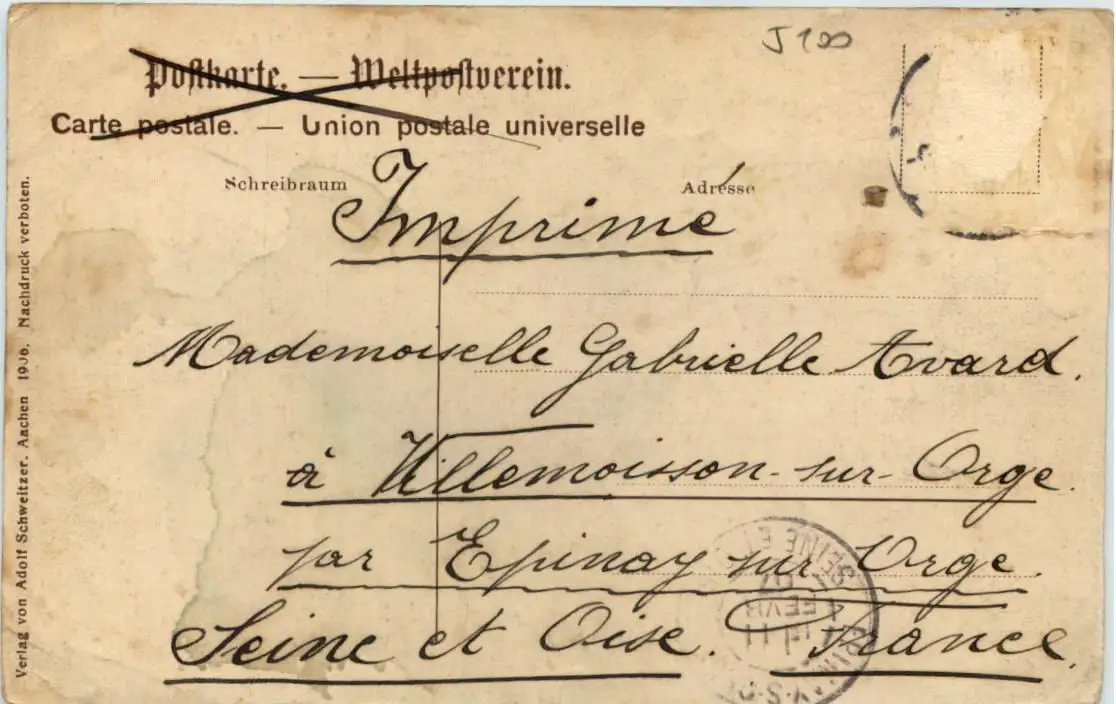 J 100
Postkarte. — Weltpostverein.
Carte postale. — Union postale universelle
Schreibraum
Adresse
Imprimé
Mademoiselle Gabrielle Avard.
à Villemoisson-sur-Orge.
par Epinay sur Orge.
Seine et Oise. France.
SEINE ET
FEVR
07
Verlag von Adolf Schweitzer. Aachen 1906. Nachdruck verboten.